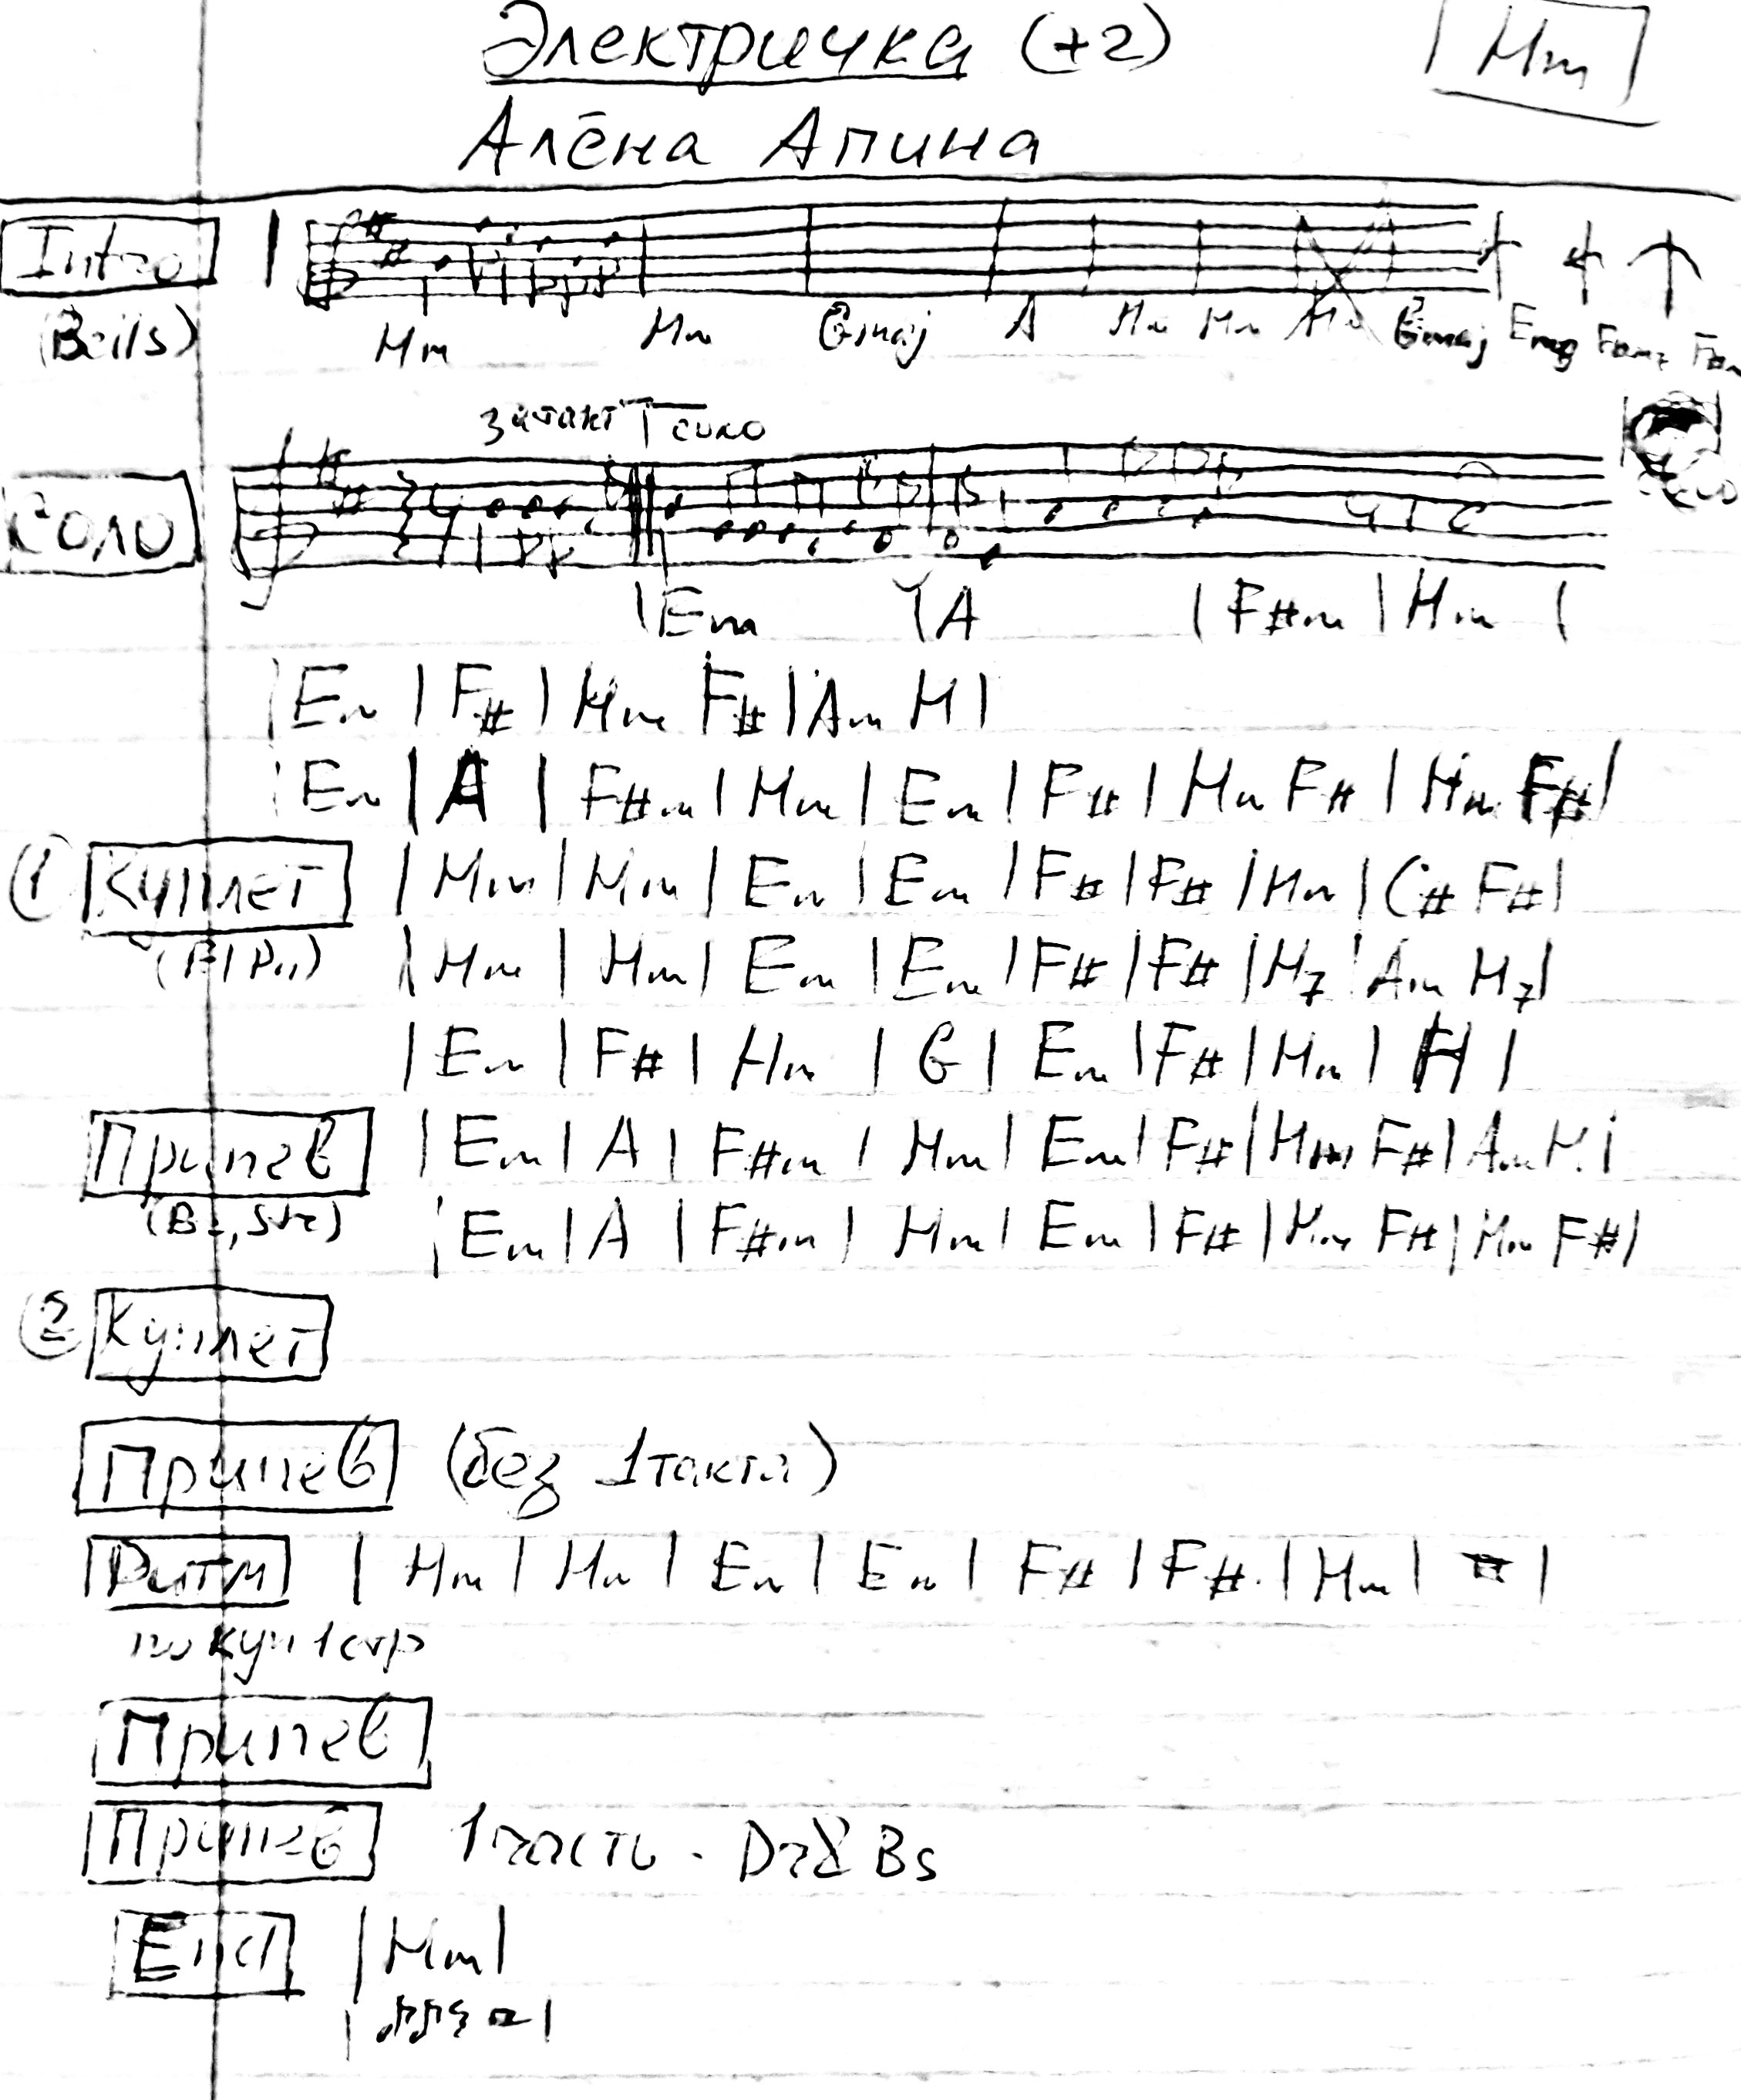 Электричка (+2) | Hm |
Алёна Апина
Intro
(Bells) Hm Hm Gmaj A Hm Hm Hm Gmaj Em
затакт соло
Соло
| Em | A | F#m | Hm |
| Em | F# | Hm F# | Am H |
| Em | A | F#m | Hm | Em | F# | Hm F# | Hm F# |
① Куплет | Hm | Hm | Em | Em | F# | F# | Hm | C# F# |
| Hm | Hm | Em | Em | F# | F# | H7 | Am H7 |
| Em | F# | Hm | G | Em | F# | Hm | H |
Припев | Em | A | F#m | Hm | Em | F# | Hm F# | Am H |
(Bs, Str) | Em | A | F#m | Hm | Em | F# | Hm F# | Hm F# |
② Куплет
Припев (без 1 такта)
Ритм | Hm | Hm | Em | Em | F# | F# | Hm | |
по куп 1 стр
Припев
Припев 1 часть - Dr & Bs
End | Hm |